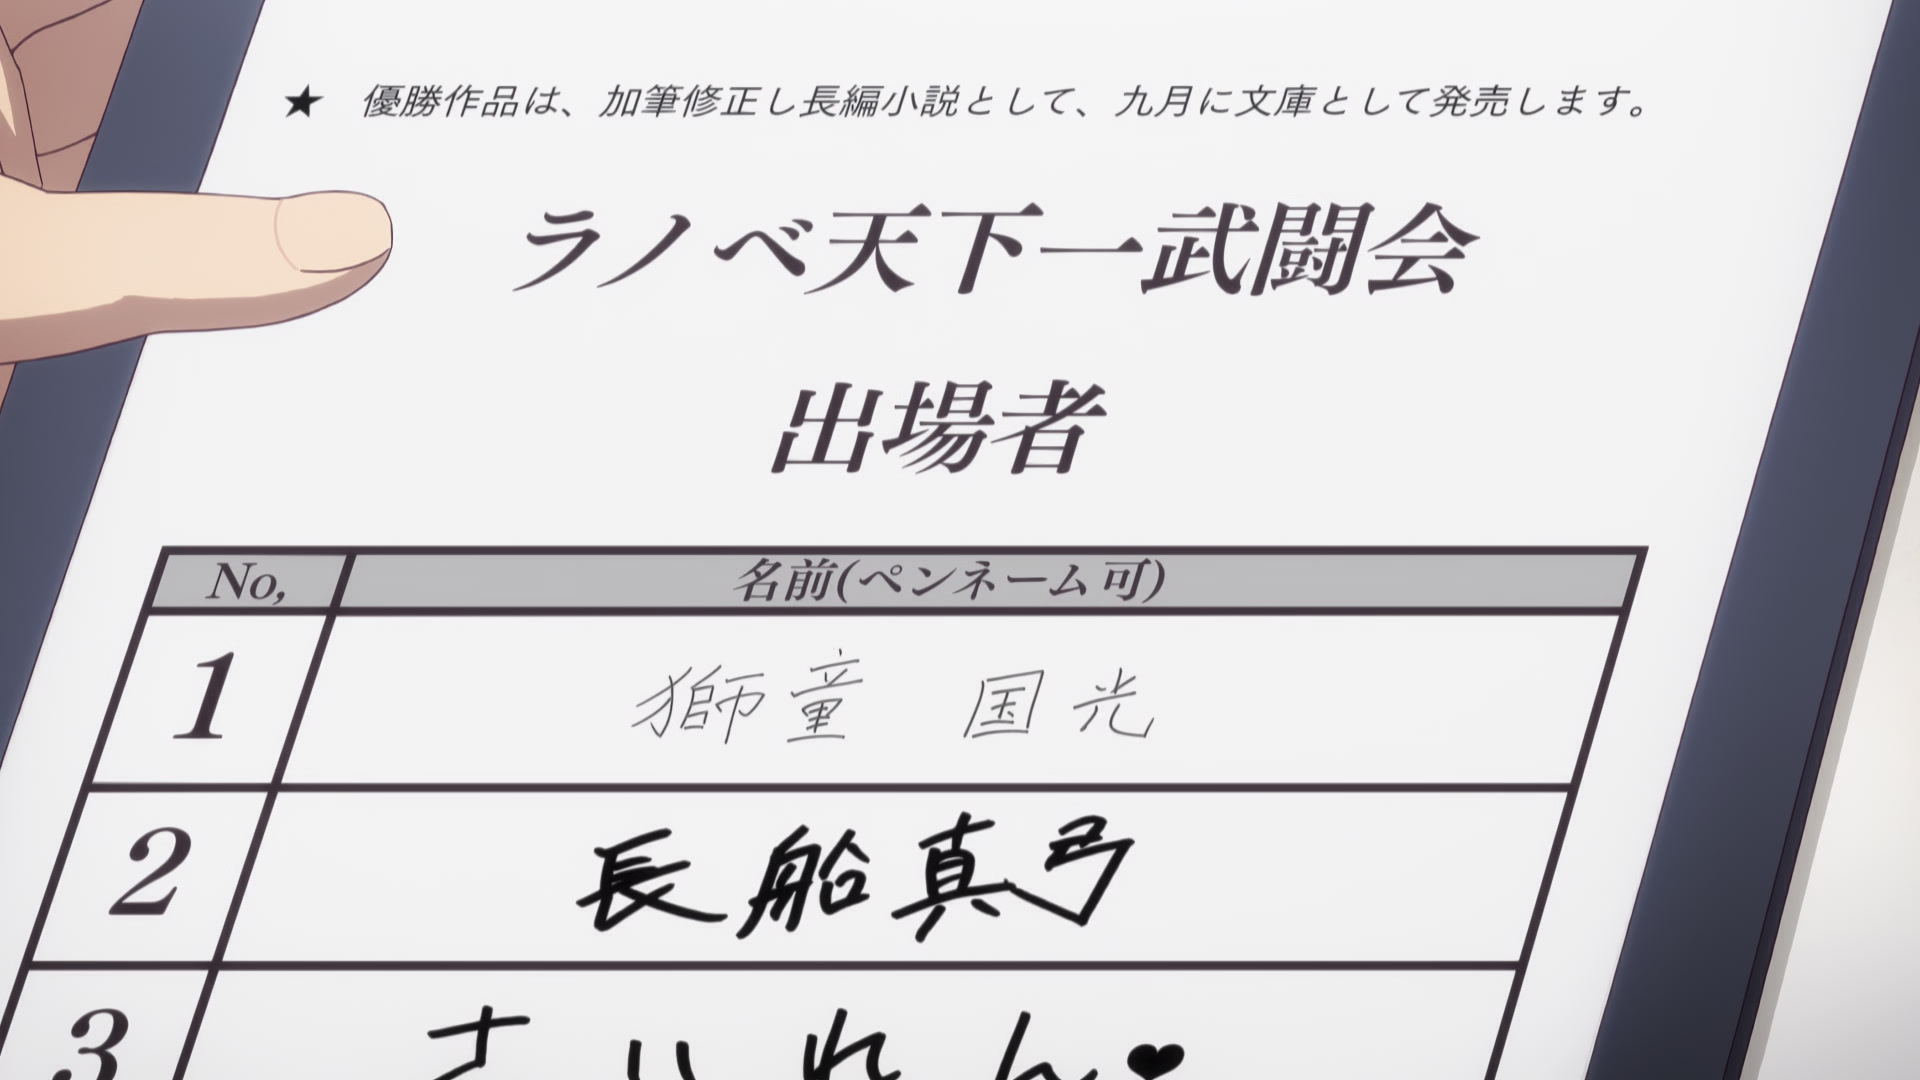 ★ 優勝作品は、加筆修正し長編小説として、九月に文庫として発売します。
ラノベ天下一武闘会
出場者
No, 名前(ペンネーム可)
1 獅童 国光
2 長船真弓
3 さいれん♥